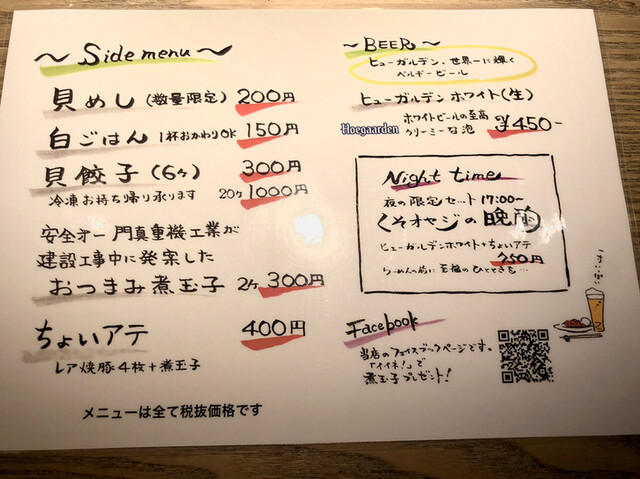 ～Side menu～
貝めし(数量限定) 200円
白ごはん 1杯おかわりOK 150円
貝餃子(6ヶ) 300円
冷凍お持ち帰り承ります 20ヶ 1000円
安全オー門真重機工業が
建設工事中に発案した
おつまみ煮玉子 2ヶ 300円
ちょいアテ 400円
レア焼豚4枚+煮玉子
メニューは全て税抜価格です
～BEER～
ヒューガルデン、世界一に輝く
ベルギービール
ヒューガルデンホワイト(生)
Hoegaarden
ホワイトビールの至高
クリーミーな泡 ¥450-
Night time
夜の限定セット17:00～
くそオヤジの晩酌
ヒューガルデンホワイト+ちょいアテ
750円
らーめんの前に至福のひとときを…
Facebook
当店のフェイスブックページです。
「イイネ!」で
煮玉子プレゼント!